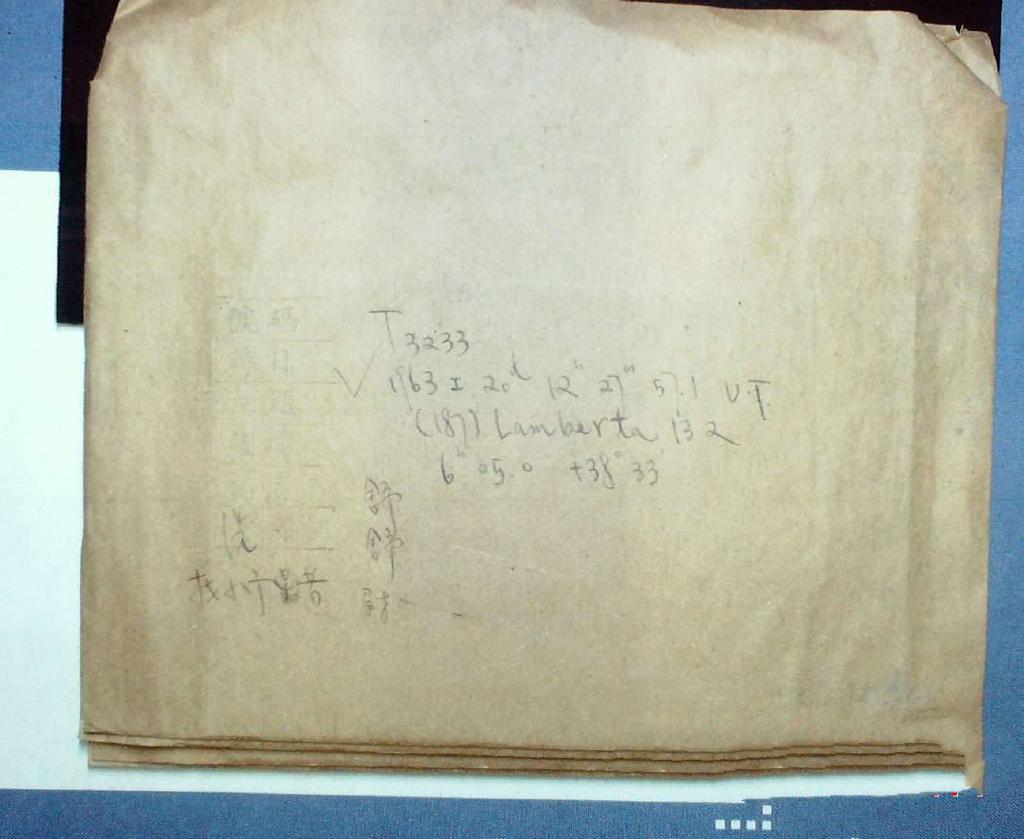 號碼
T3233
1963 I 20ᵈ 12ʰ 27ᵐ 57.1 U.T.
(187) Lamberta 13.2
6ʰ 05.0 +38° 33'
舒
洗 舒
找小行星者